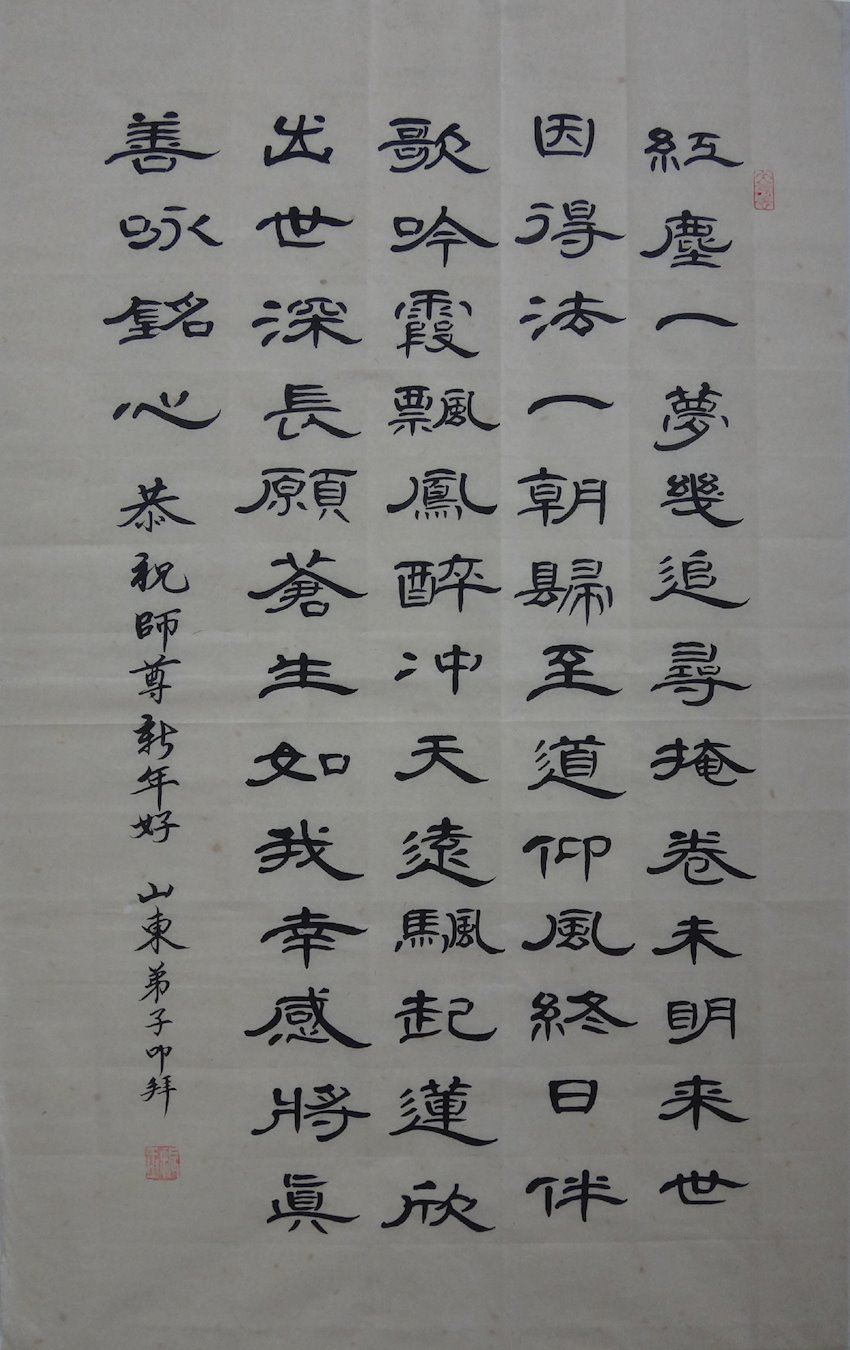 紅塵一夢幾追尋掩卷未明来世
因得法一朝歸至道仰風終日伴
歌吟霞飄鳳醉冲天遠颿起蓮欣
出世深長願蒼生如我幸感將眞
善咏銘心 恭祝師尊新年好 山東弟子叩拜